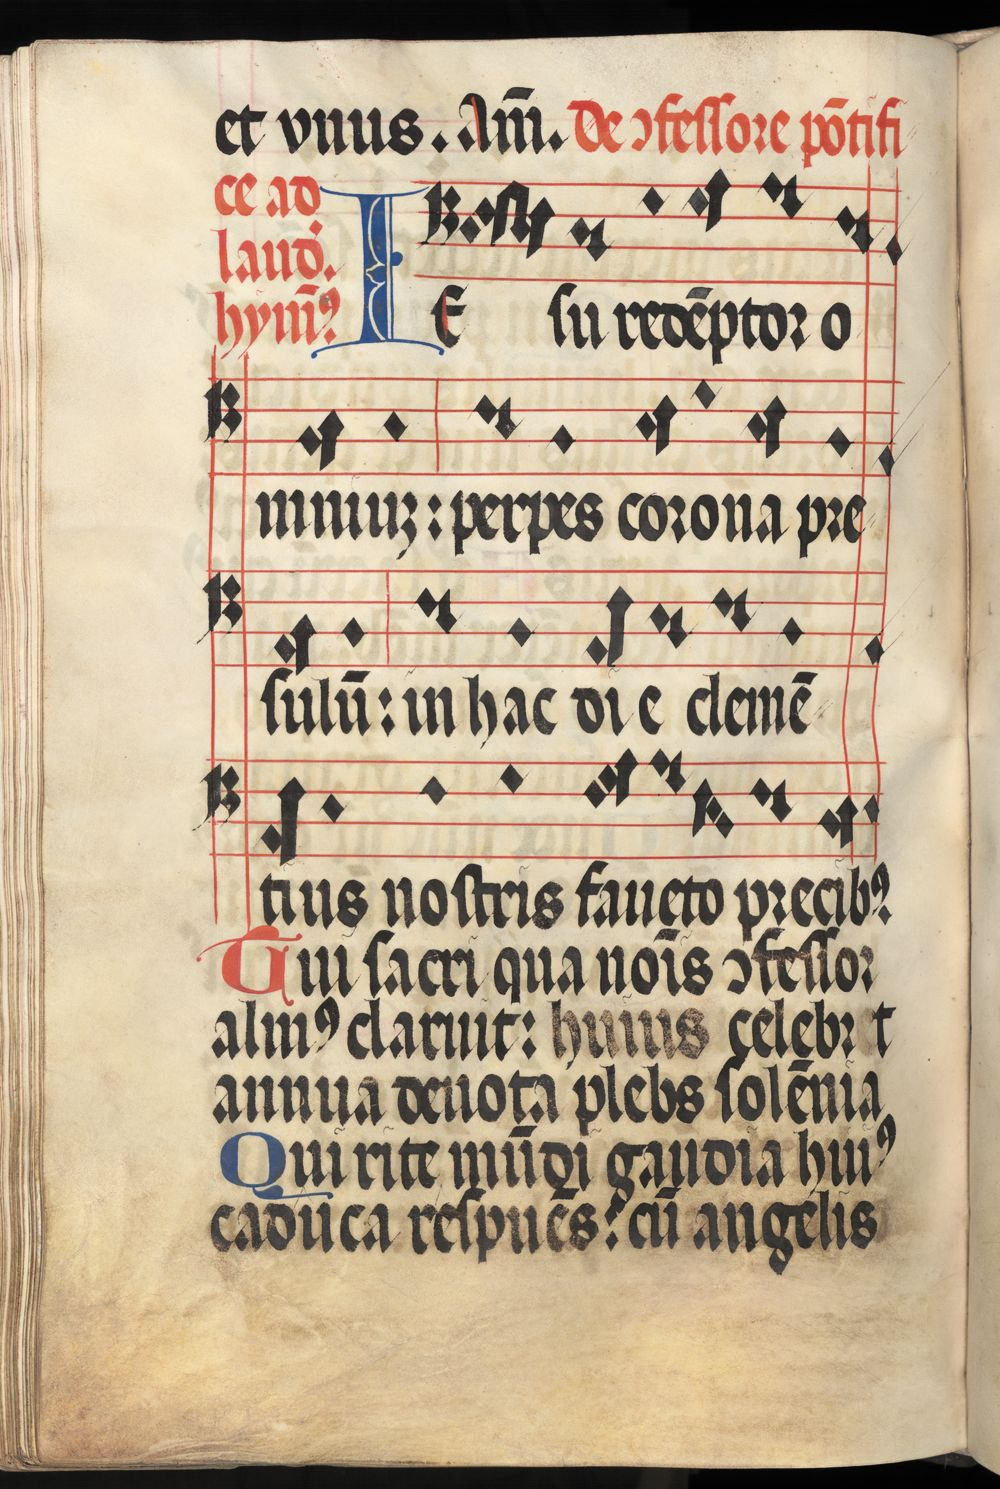 et vnus. Am̄. De ꝯfessore põtifi
ce ad
laud̾.
hym̄ꝰ
IE su redẽptor o
mniuꝫ: perpes corona pre
sulū: in hac die clemẽ
tius nostris faueto precibꝰ
Tui sacri qua noīs ꝯfessor
almꝰ claruit: huius celebrt
annua deuota plebs solẽnia
Qui rite mũdi gaudia huiꝰ
caduca respuẽs: cū angelis